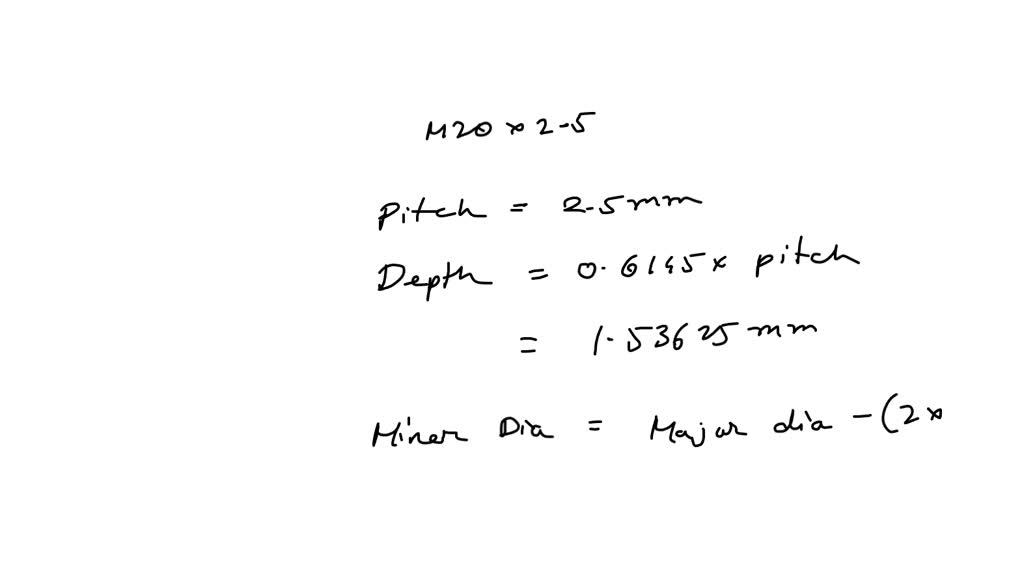 M20 x 2-5
Pitch = 2.5mm
Depth = 0.6145x pitch
= 1.53625mm
Miner Dia = Major dia - (2x